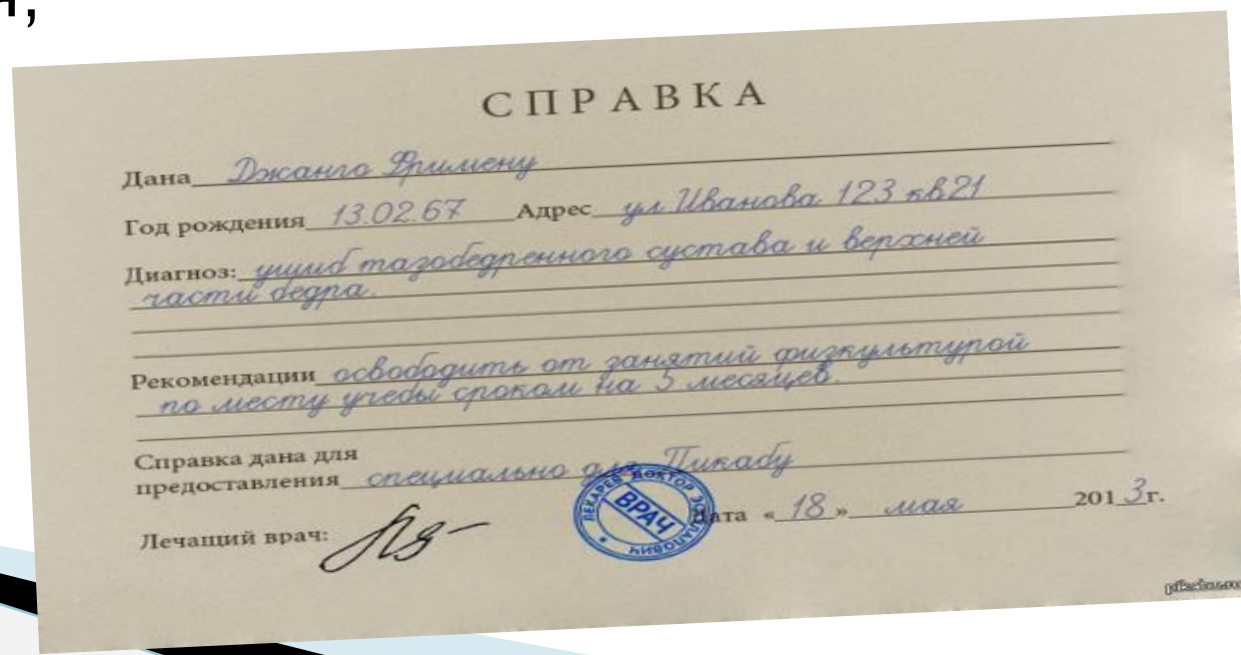 СПРАВКА
Дана Джанго Фримену
Год рождения 13.02.67 Адрес ул.Иванова 123 кв21
Диагноз: ушиб тазобедренного сустава и верхней
части бедра.
Рекомендации освободить от занятий физкультурой
по месту учебы сроком на 5 месяцев.
Справка дана для
предоставления специально для Пикабу
ЛЕКАРЕВ ДОКТОР
ВРАЧ
Лечащий врач: Дата «18» мая 2013г.